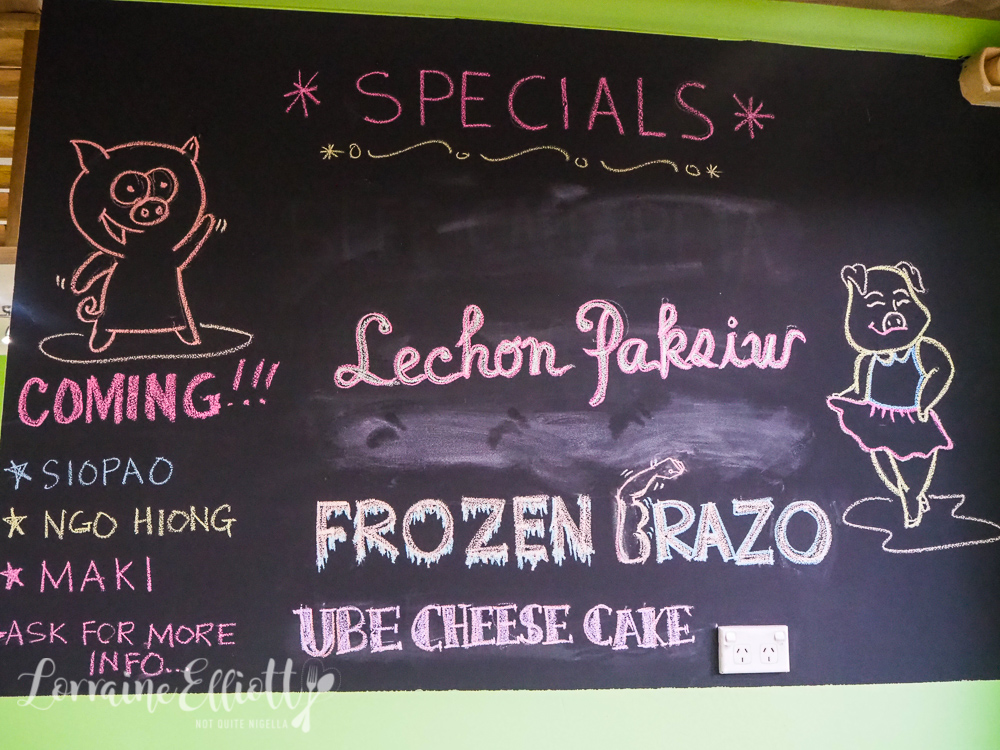 * SPECIALS *
Lechon Paksiw
FROZEN BRAZO
UBE CHEESE CAKE
COMING!!!
* SIOPAO
* NGO HIONG
* MAKI
ASK FOR MORE
INFO...
Lorraine Elliott
NOT QUITE NIGELLA